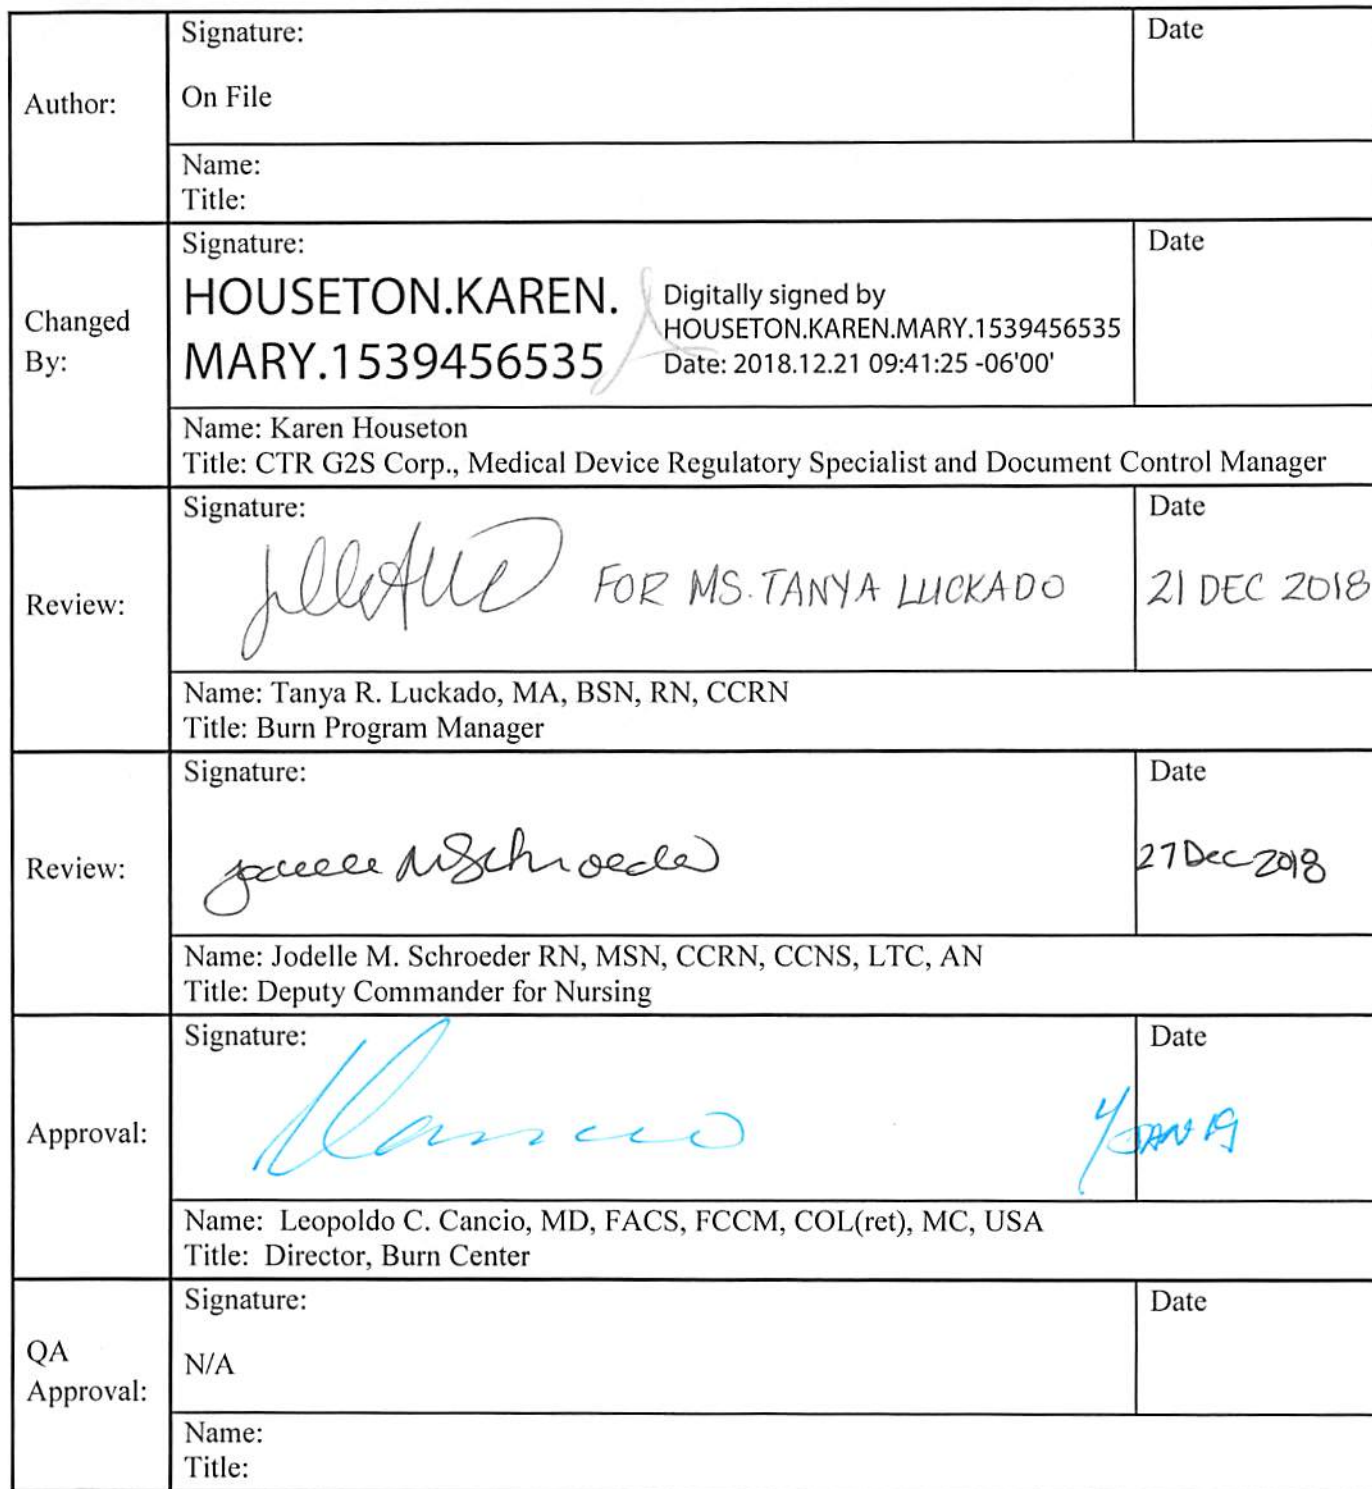 Author:
Signature:
On File
Date
Name:
Title:
Changed
By:
Signature:
HOUSETON.KAREN.
MARY.1539456535
Digitally signed by
HOUSETON.KAREN.MARY.1539456535
Date: 2018.12.21 09:41:25 -06'00'
Date
Name: Karen Houseton
Title: CTR G2S Corp., Medical Device Regulatory Specialist and Document Control Manager
Review:
Signature:
FOR MS. TANYA LUCKADO
Date
21 DEC 2018
Name: Tanya R. Luckado, MA, BSN, RN, CCRN
Title: Burn Program Manager
Review:
Signature:
Schroeder
Date
27 Dec 2018
Name: Jodelle M. Schroeder RN, MSN, CCRN, CCNS, LTC, AN
Title: Deputy Commander for Nursing
Approval:
Signature:
Date
4 JAN 19
Name: Leopoldo C. Cancio, MD, FACS, FCCM, COL(ret), MC, USA
Title: Director, Burn Center
QA
Approval:
Signature:
N/A
Date
Name:
Title: